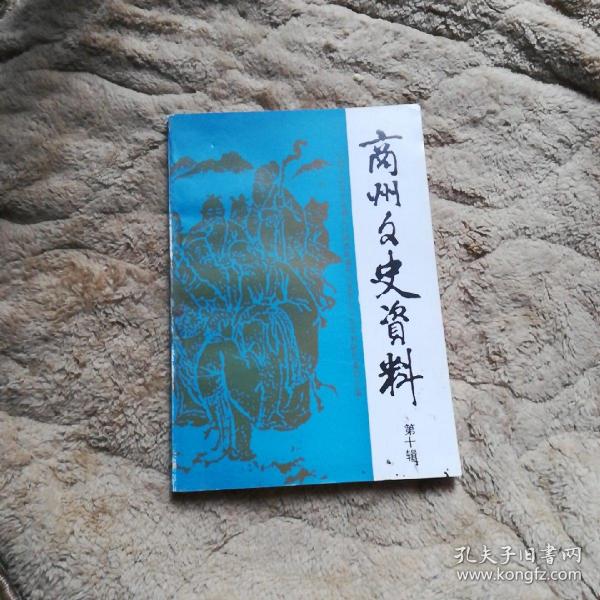 商州文史資料
第十辑
孔夫子旧書网
www.kongfz.com